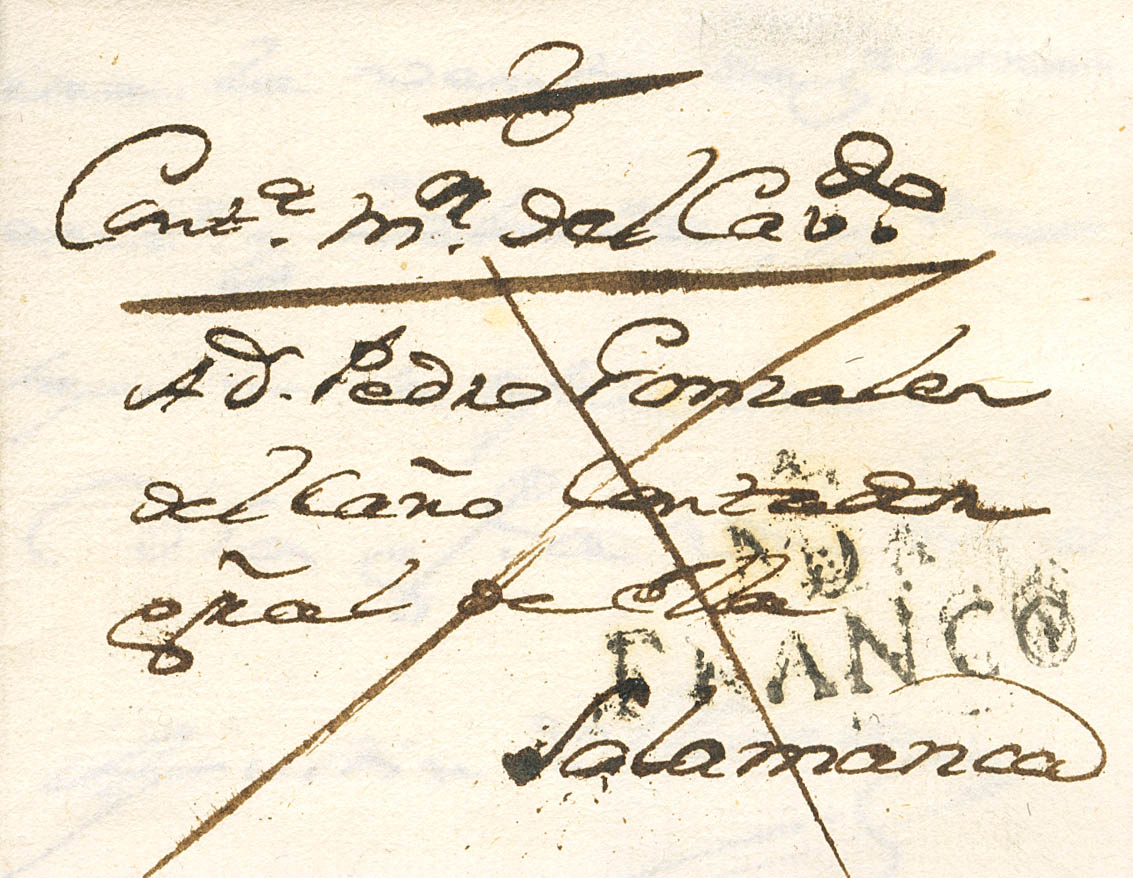 Cont.ª m.ⁿ del Cav.do
A d.ⁿ Pedro Gonzalez
del Caño Contador
gñal de Ella
FRANCO
Salamanca